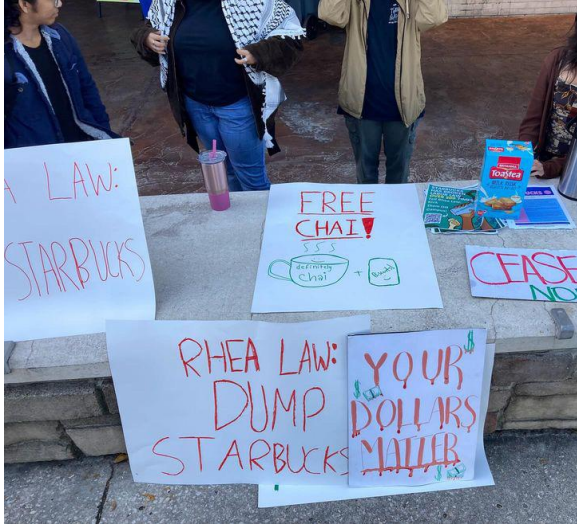 A LAW:
STARBUCKS
FREE
CHAI!
definitely
chai
+
Toastea
CEASE
NO
RHEA LAW:
DUMP
STARBUCKS
YOUR
DOLLARS
MATTER